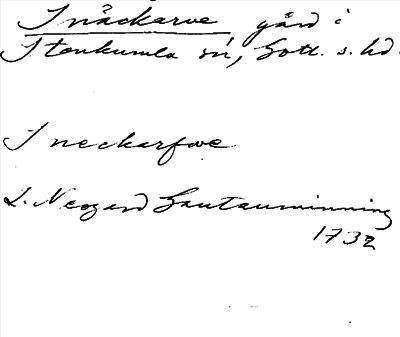 Snäckarve gård i
Stenkumla sn, Gotl. s. hd
Sneckarfwe
L. Neogard Gautauminning
1732